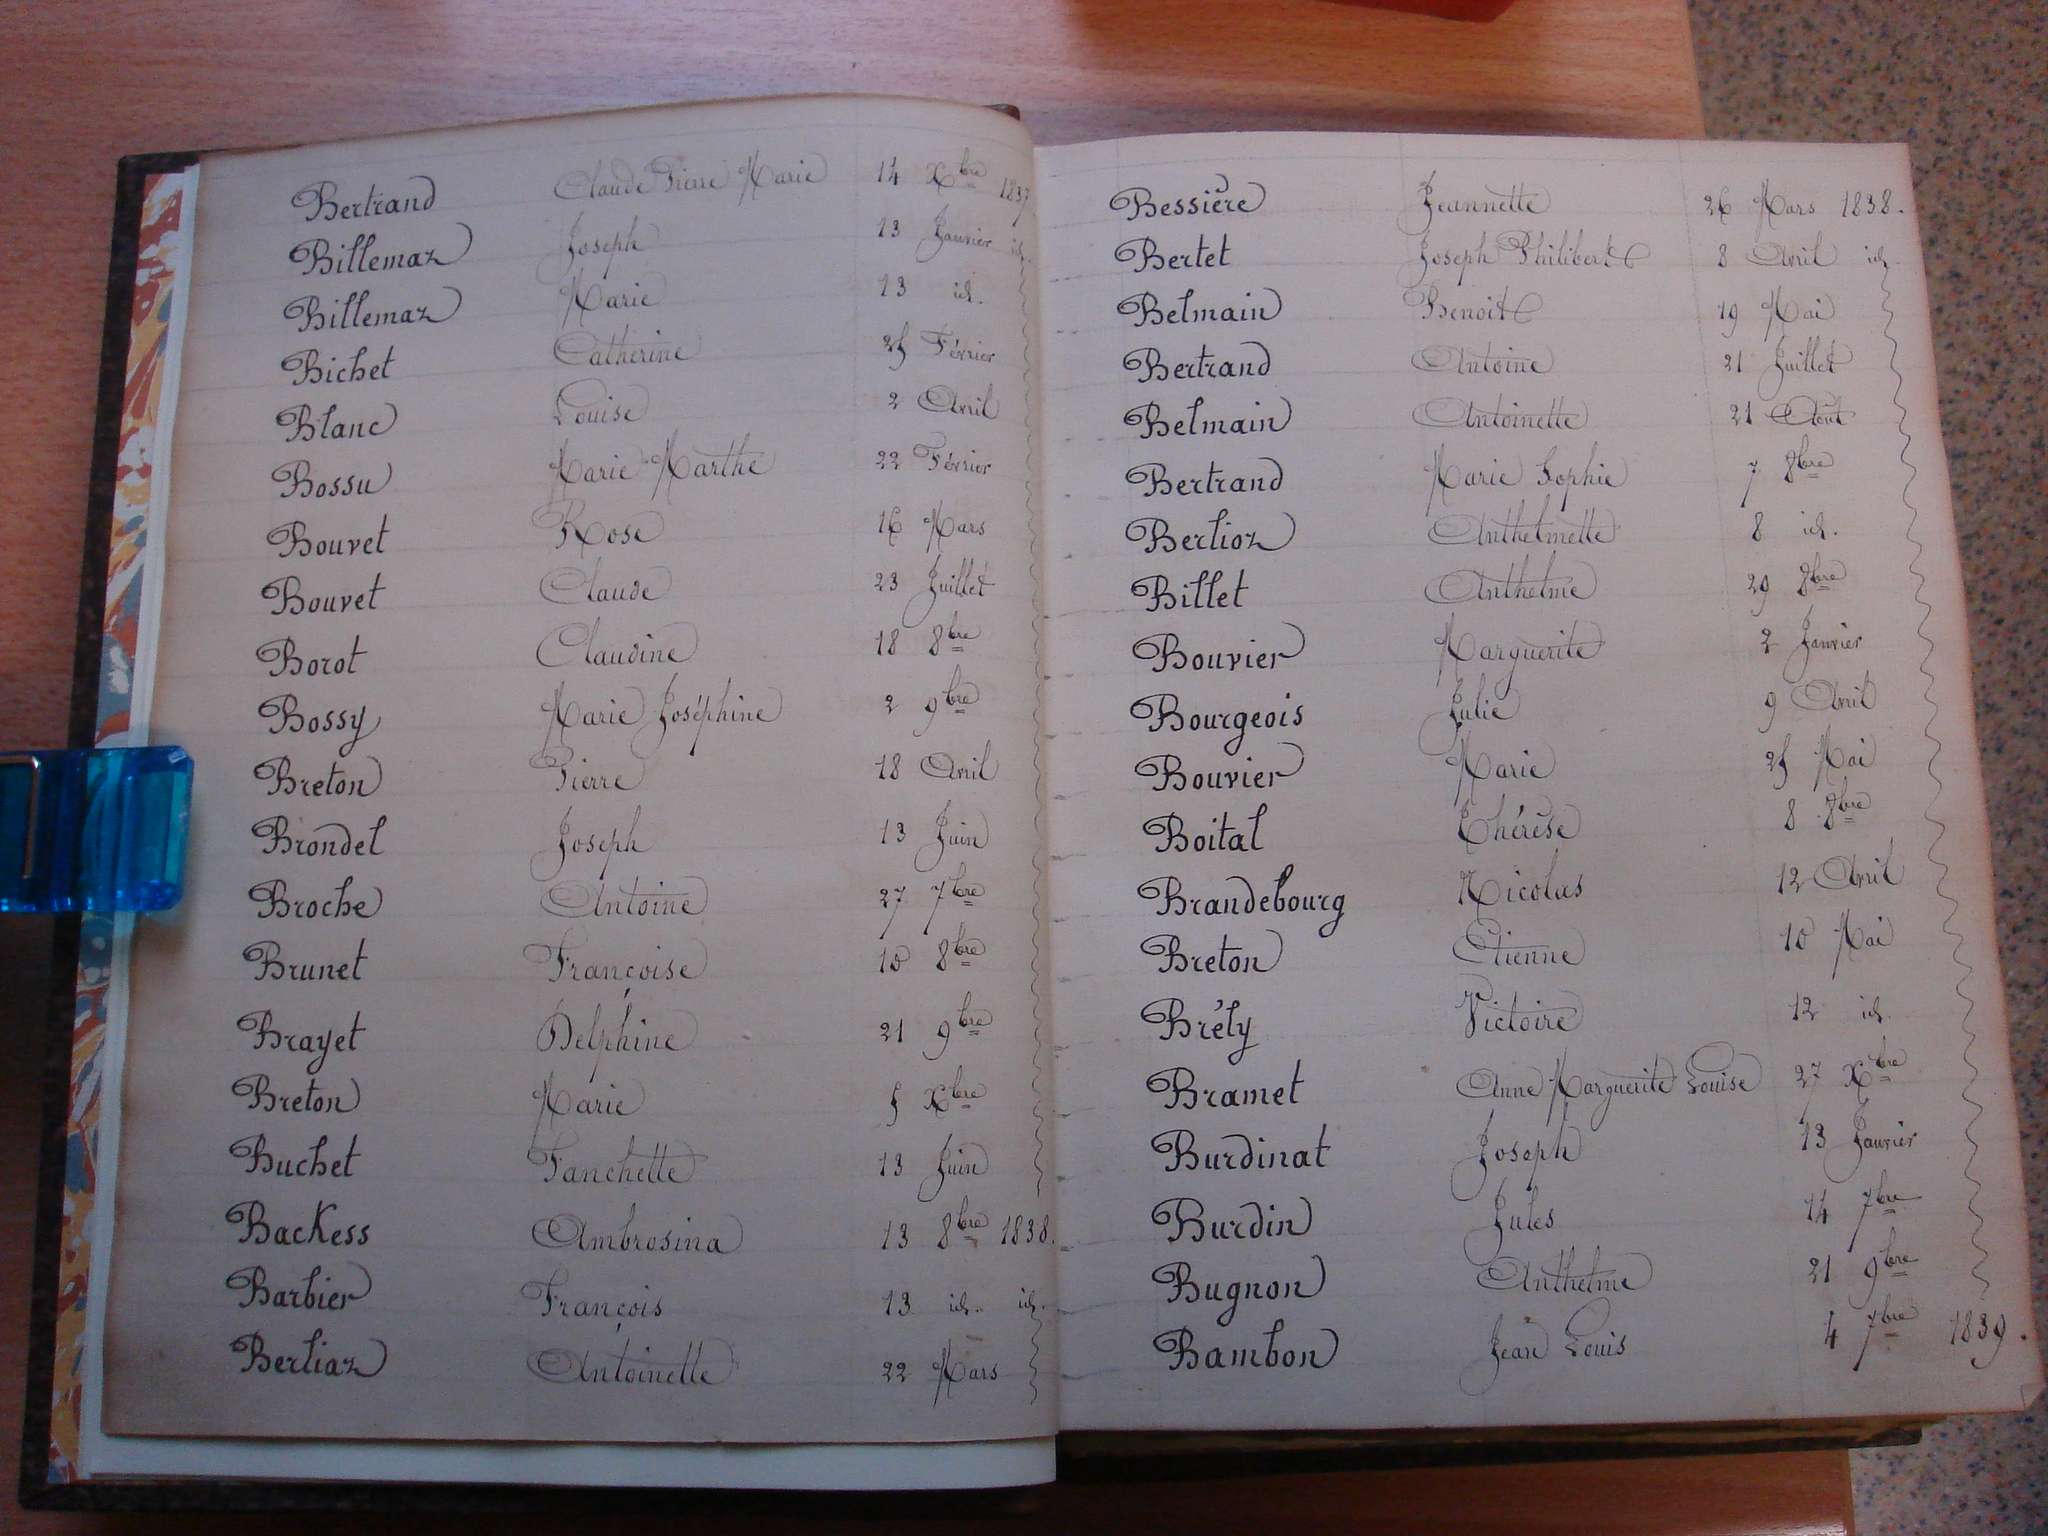 Bertrand Claude Pierre Marie 14 Xbre 1837
Billemaz Joseph 13 Janvier id.
Billemaz Marie 13 id.
Bichet Catherine 25 Février
Blanc Louise 2 Avril
Bossu Marie Marthe 22 Février
Bouvet Rose 16 Mars
Bouvet Claude 23 Juillet
Borot Claudine 18 8bre
Bossy Marie Joséphine 2 9bre
Breton Pierre 18 Avril
Brondel Joseph 13 Juin
Broche Antoine 27 7bre
Brunet Françoise 10 8bre
Brayet Delphine 21 9bre
Breton Marie 5 Xbre
Buchet Fanchette 13 Juin
Backess Ambrosina 13 8bre 1838.
Barbier François 13 id. id.
Berliaz Antoinette 22 Mars
Bessière Jeannette 26 Mars 1838.
Bertet Joseph Philibert 8 Avril id.
Belmain Benoit 19 Mai
Bertrand Antoine 21 Juillet
Belmain Antoinette 21 Août
Bertrand Marie Sophie 7 8bre
Berlioz Anthelmette 8 id.
Billet Anthelme 29 8bre
Bouvier Marguerite 2 Janvier
Bourgeois Julie 9 Avril
Bouvier Marie 25 Mai
Boital Thérèse 8 8bre
Brandebourg Nicolas 12 Avril
Breton Etienne 10 Mai
Brély Victoire 12 id.
Bramet Anne Marguerite Louise 27 Xbre
Burdinat Joseph 13 Janvier
Burdin Jules 14 7bre
Bugnon Anthelme 21 9bre
Bambon Jean Louis 4 7bre 1839.